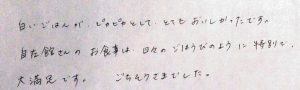 白いごはんが、ピカピカとして、とてもおいしかったです。
自在館さんの お食事は、日々のごほうびのように 特別で、
大満足です。 ごちそうさまでした。